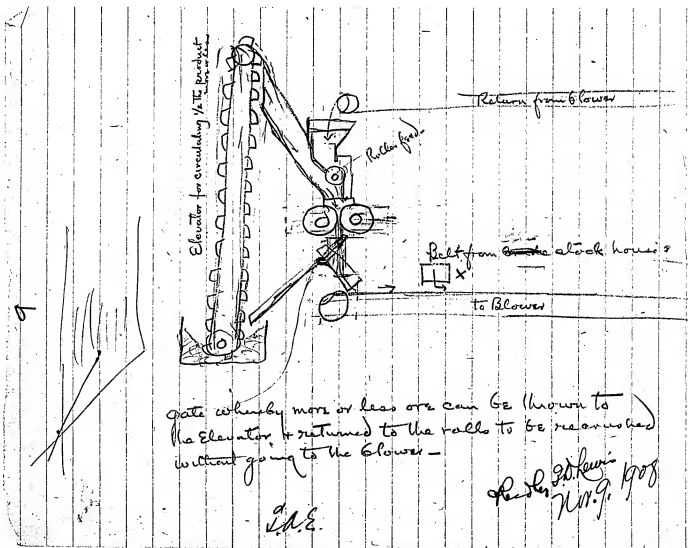 Elevator for circulating 1/2 the product
more or less
Return from blower
Roller feed
Belt from stock house
x
to Blower
9
gate whereby more or less ore can be thrown to
the Elevator, + returned to the rolls to be recrushed
without going to the blower —
Nov. 9. 1908
T.A.E.